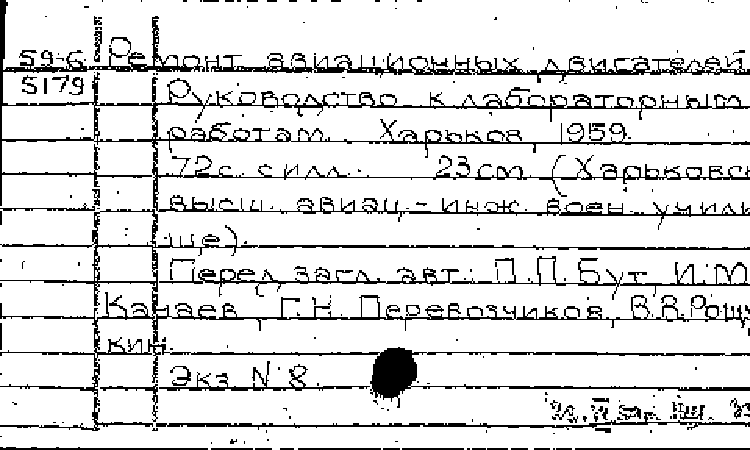 59-6 Ремонт авиационных двигателей
5179 Руководство к лабораторным
работам. Харьков, 1959.
72с. с илл. 23см (Харьковск
высш. авиац.-инж. воен. учили
ще).
Перед загл. авт.: П.П. Бут, И.М.
Канаев, Г.Н. Перевозчиков, В.В. Рощу
кин.
Экз. N 8.